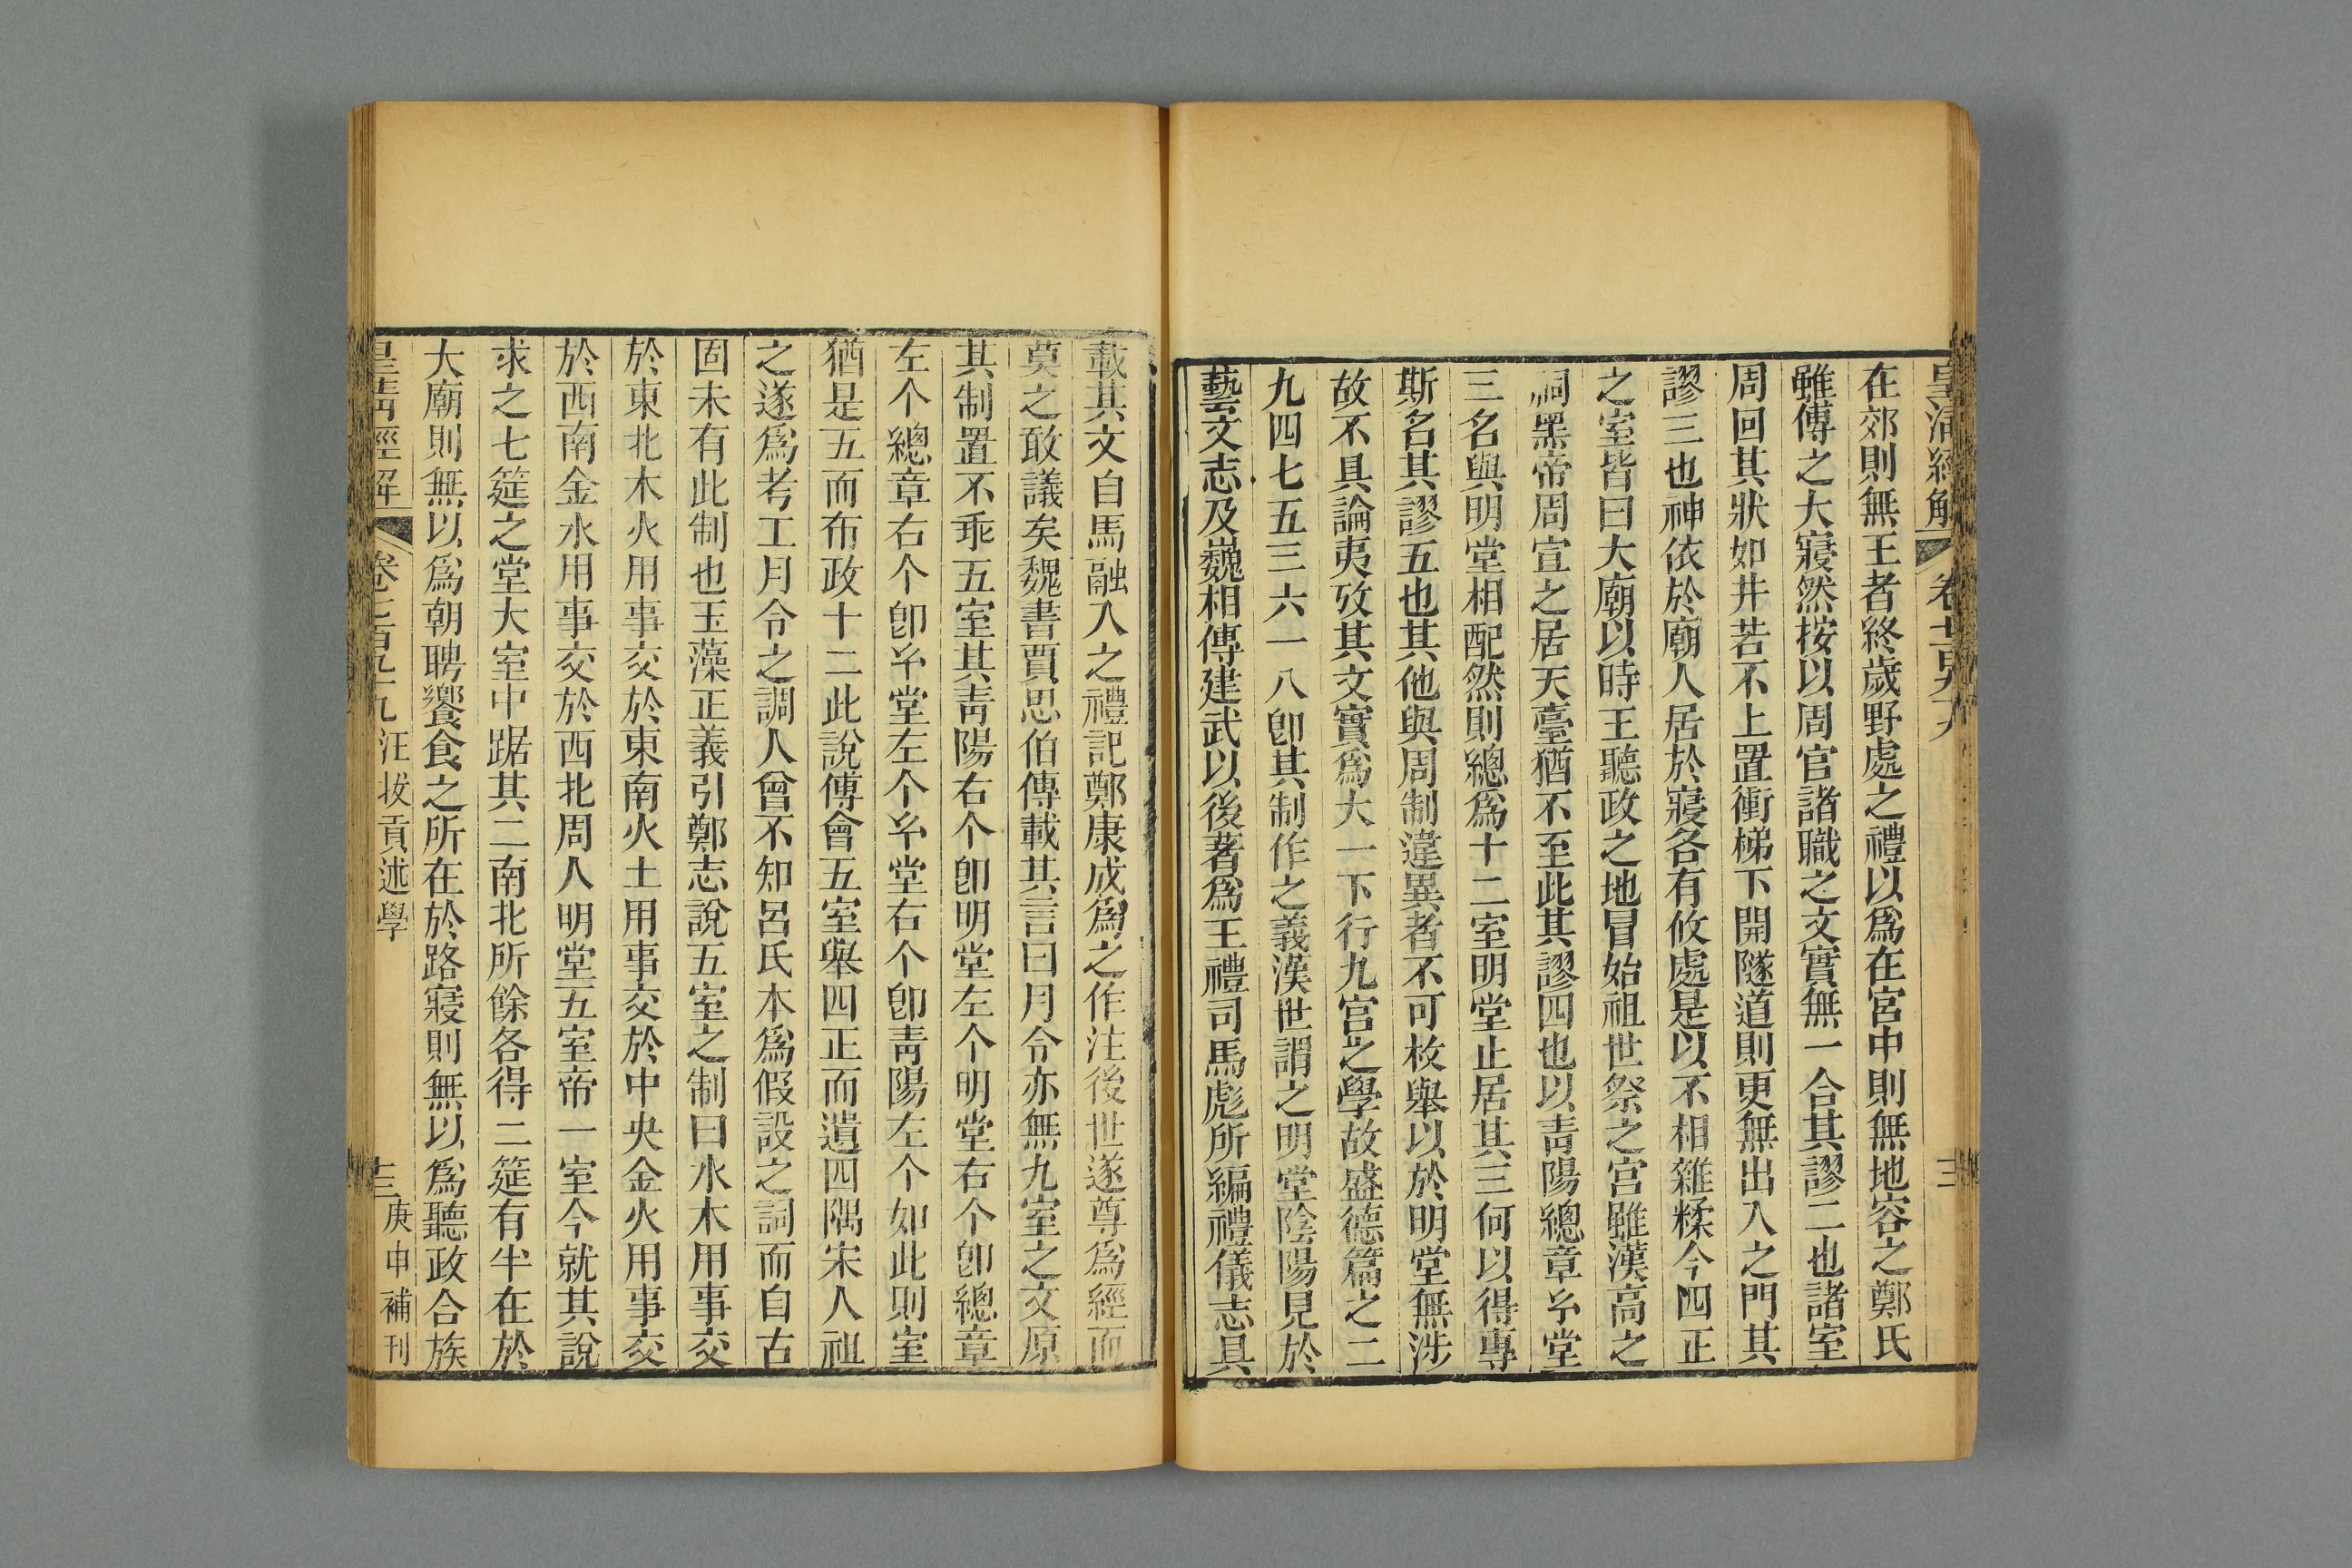 皇清經解
在郊則無王者終歲野處之禮以爲在宮中則無地容之鄭氏
雖傅之大寢然按以周官諸職之文實無一合其謬二也諸室
周回其狀如井若不上置衝梯下開隧道則更無出入之門其
謬三也神依於廟人居於寢各有攸處是以不相雜糅今四正
之室皆曰大廟以時王聽政之地冒始祖世祭之宮雖漢高之
祠黑帝周宣之居天臺猶不至此其謬四也以靑陽總章𢆯堂
三名與明堂相配然則總爲十二室明堂止居其三何以得專
斯名其謬五也其他與周制違異者不可枚舉以於明堂無涉
故不具論夷攷其文實爲大一下行九宮之學故盛德篇之二
九四七五三六一八卽其制作之義漢世謂之明堂陰陽見於
藝文志及巍相傳建武以後著爲王禮司馬彪所編禮儀志具
載其文自馬融入之禮記鄭康成爲之作注後世遂尊爲經而
莫之敢議矣魏書賈思伯傳載其言曰月令亦無九室之文原
其制置不乖五室其靑陽右个卽明堂左个明堂右个卽總章
左个總章右个卽𢆯堂左个𢆯堂右个卽靑陽左个如此則室
猶是五而布政十二此說傅會五室舉四正而遺四隅宋人祖
之遂爲考工月令之調人曾不知呂氏本爲假設之詞而自古
固未有此制也玉藻正義引鄭志說五室之制曰水木用事交
於東北木火用事交於東南火土用事交於中央金火用事交
於西南金水用事交於西北周人明堂五室帝一室今就其說
求之七筵之堂大室中踞其二南北所餘各得二筵有半在於
大廟則無以爲朝聘饗食之所在於路寢則無以爲聽政合族
皇清經解 卷七百九十九 汪拔貢述學 十三 庚申補刊